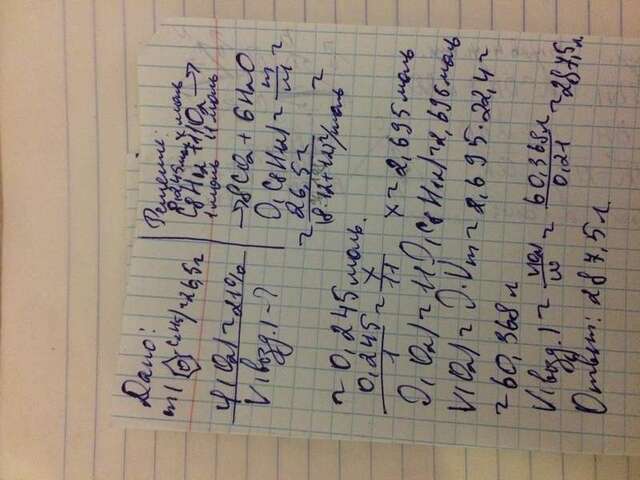 Дано:
m( C2H5)=26,5г
φ(O2)=21%
V(возд.)-?
Решение:
0,245моль x моль
C8H12+11O2→
1моль 11моль
→8CO2+6H2O
ν(C8H12)=m/M=
=26,5г/(8·12+12)г/моль=
=0,245моль.
0,245/1=x/11 x=2,695моль
ν(O2)=11ν(C8H12)=2,695моль
V(O2)=ν·Vm=2,695·22,4=
=60,368л
V(возд.)=V(O2)/φ=60,368л/0,21=287,5л
Ответ: 287,5л